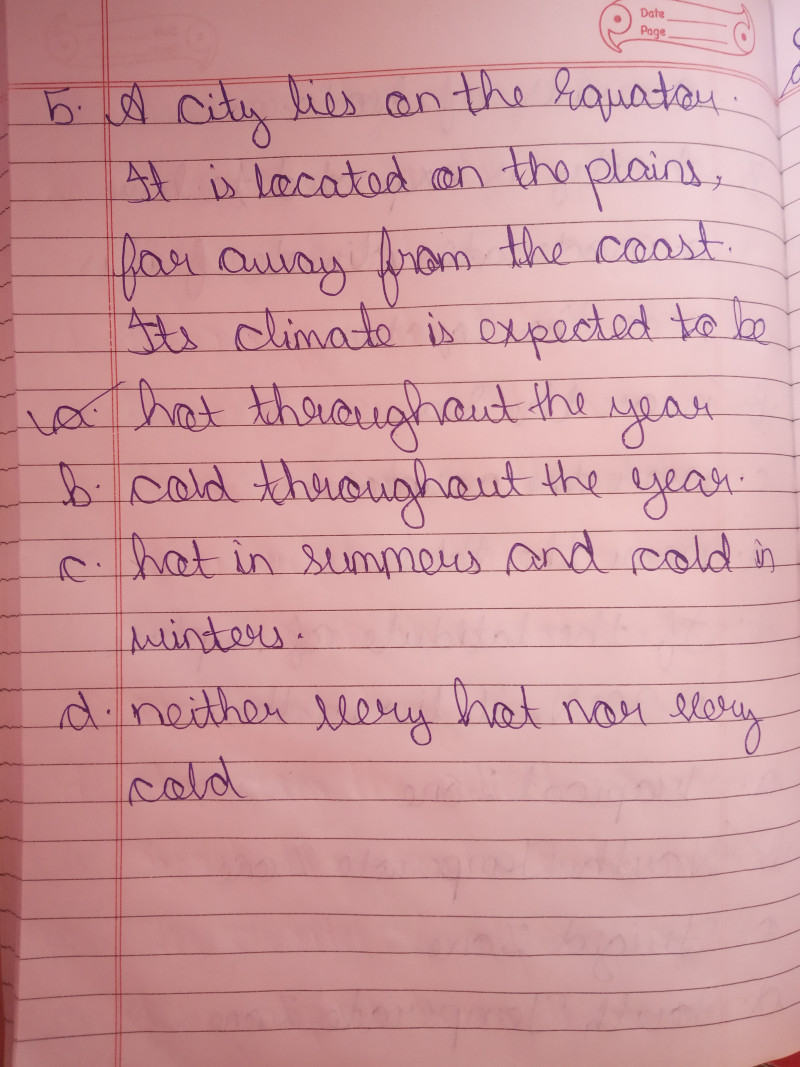 Date
Page
5. A city lies on the Equator.
It is located on the plains,
far away from the coast.
Its climate is expected to be
a. hot throughout the year
b. cold throughout the year.
c. hot in summers and cold in
winters.
d. neither very hot nor very
cold